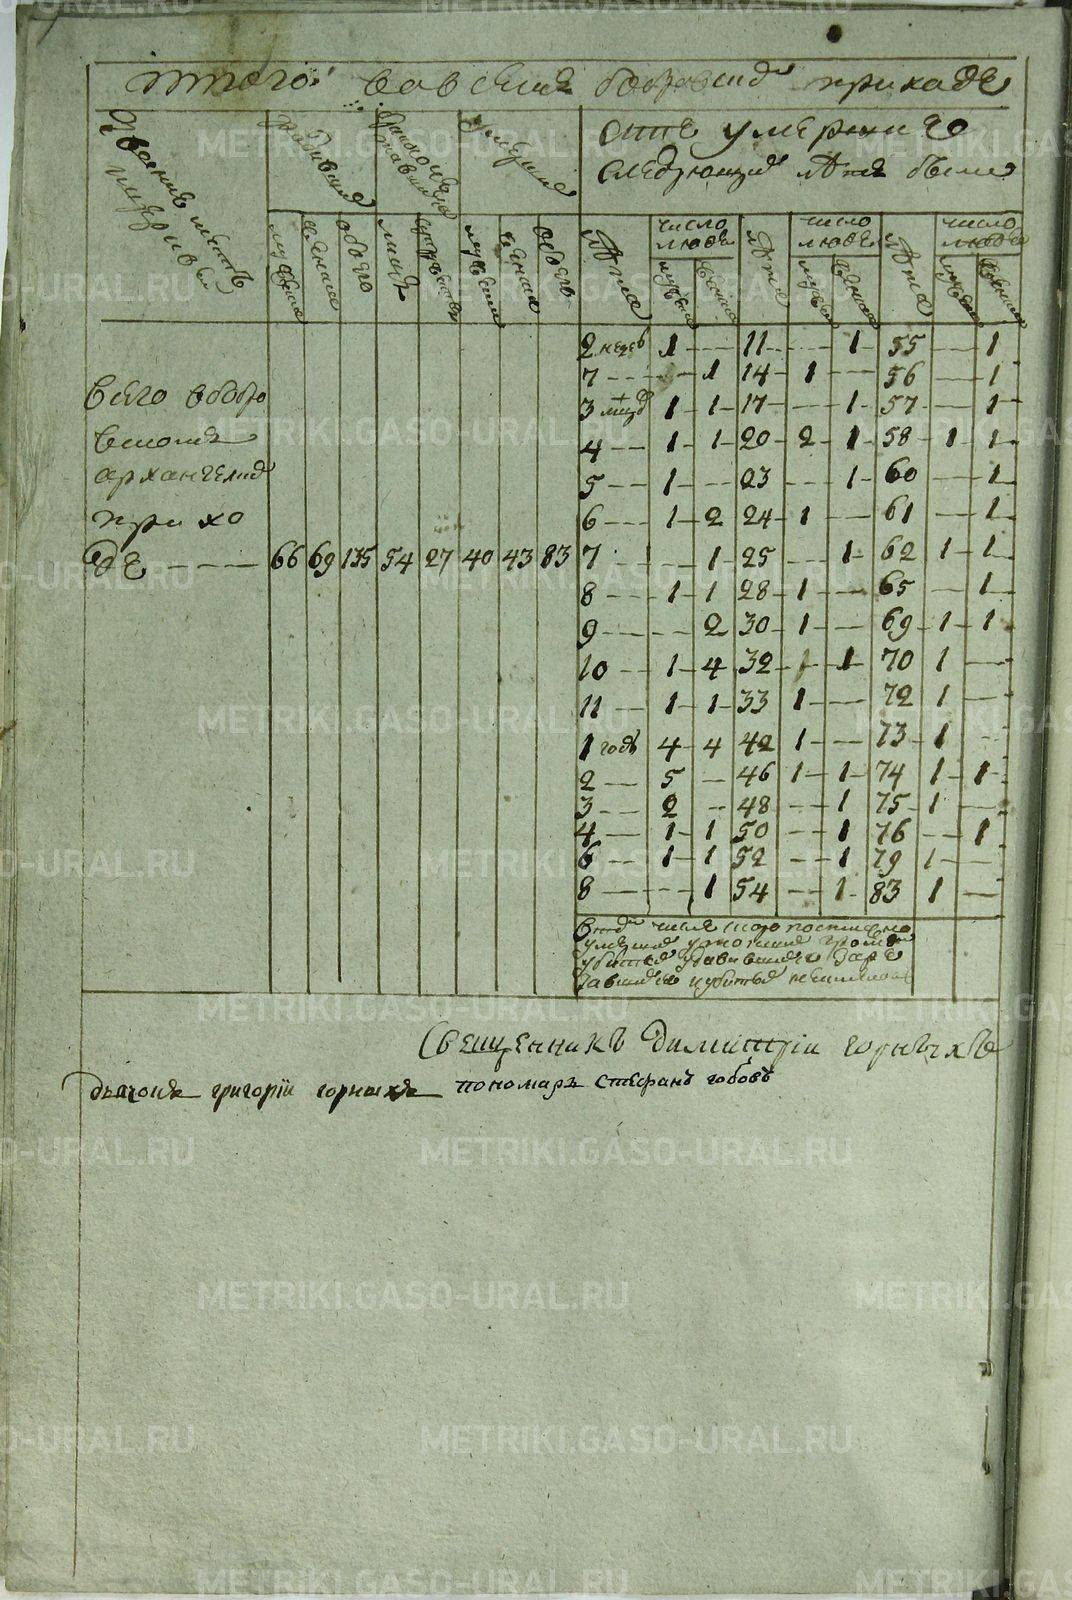 итого: во всем бобровском приходе
Звание мест и церквей
Родившихся
Бракосочетавшихся
Умерших
оть умерших
следующия лета были
мужеска
женска
обоего
лиць
супружеств
мужеска
женска
обоего
Лета
число людей
мужеска
женска
Лета
число людей
мужеска
женска
Лета
число людей
мужеска
женска
2 недел 1 — 11 — 1 55 — 1
7 — 1 14 1 — 56 — 1
всего в бобро
3 месяц 1 1 17 — 1 57 — 1
вском
4 1 1 20 2 1 58 1 1
архангелском
5 1 — 23 — 1 60 — 1
прихо
6 1 2 24 1 — 61 — 1
де — 66 69 135 54 27 40 43 83 7 — 1 25 — 1 62 1 1
8 1 1 28 1 — 65 — 1
9 — 2 30 1 — 69 1 1
10 1 4 32 1 1 70 1 —
11 1 1 33 1 — 72 1 —
1 годъ 4 4 42 1 — 73 1 —
2 5 — 46 1 1 74 1 1
3 2 — 48 — 1 75 1 —
4 1 1 50 — 1 76 — 1
6 1 1 52 — 1 79 1 —
8 — 1 54 — 1 83 1 —
числе скоропостижно
умерших громом
убитых
Священникъ Димитрiи горныхъ
дьячокъ григорiи горныхъ пономарь стефанъ гобовъ
METRIKI.GASO-URAL.RU